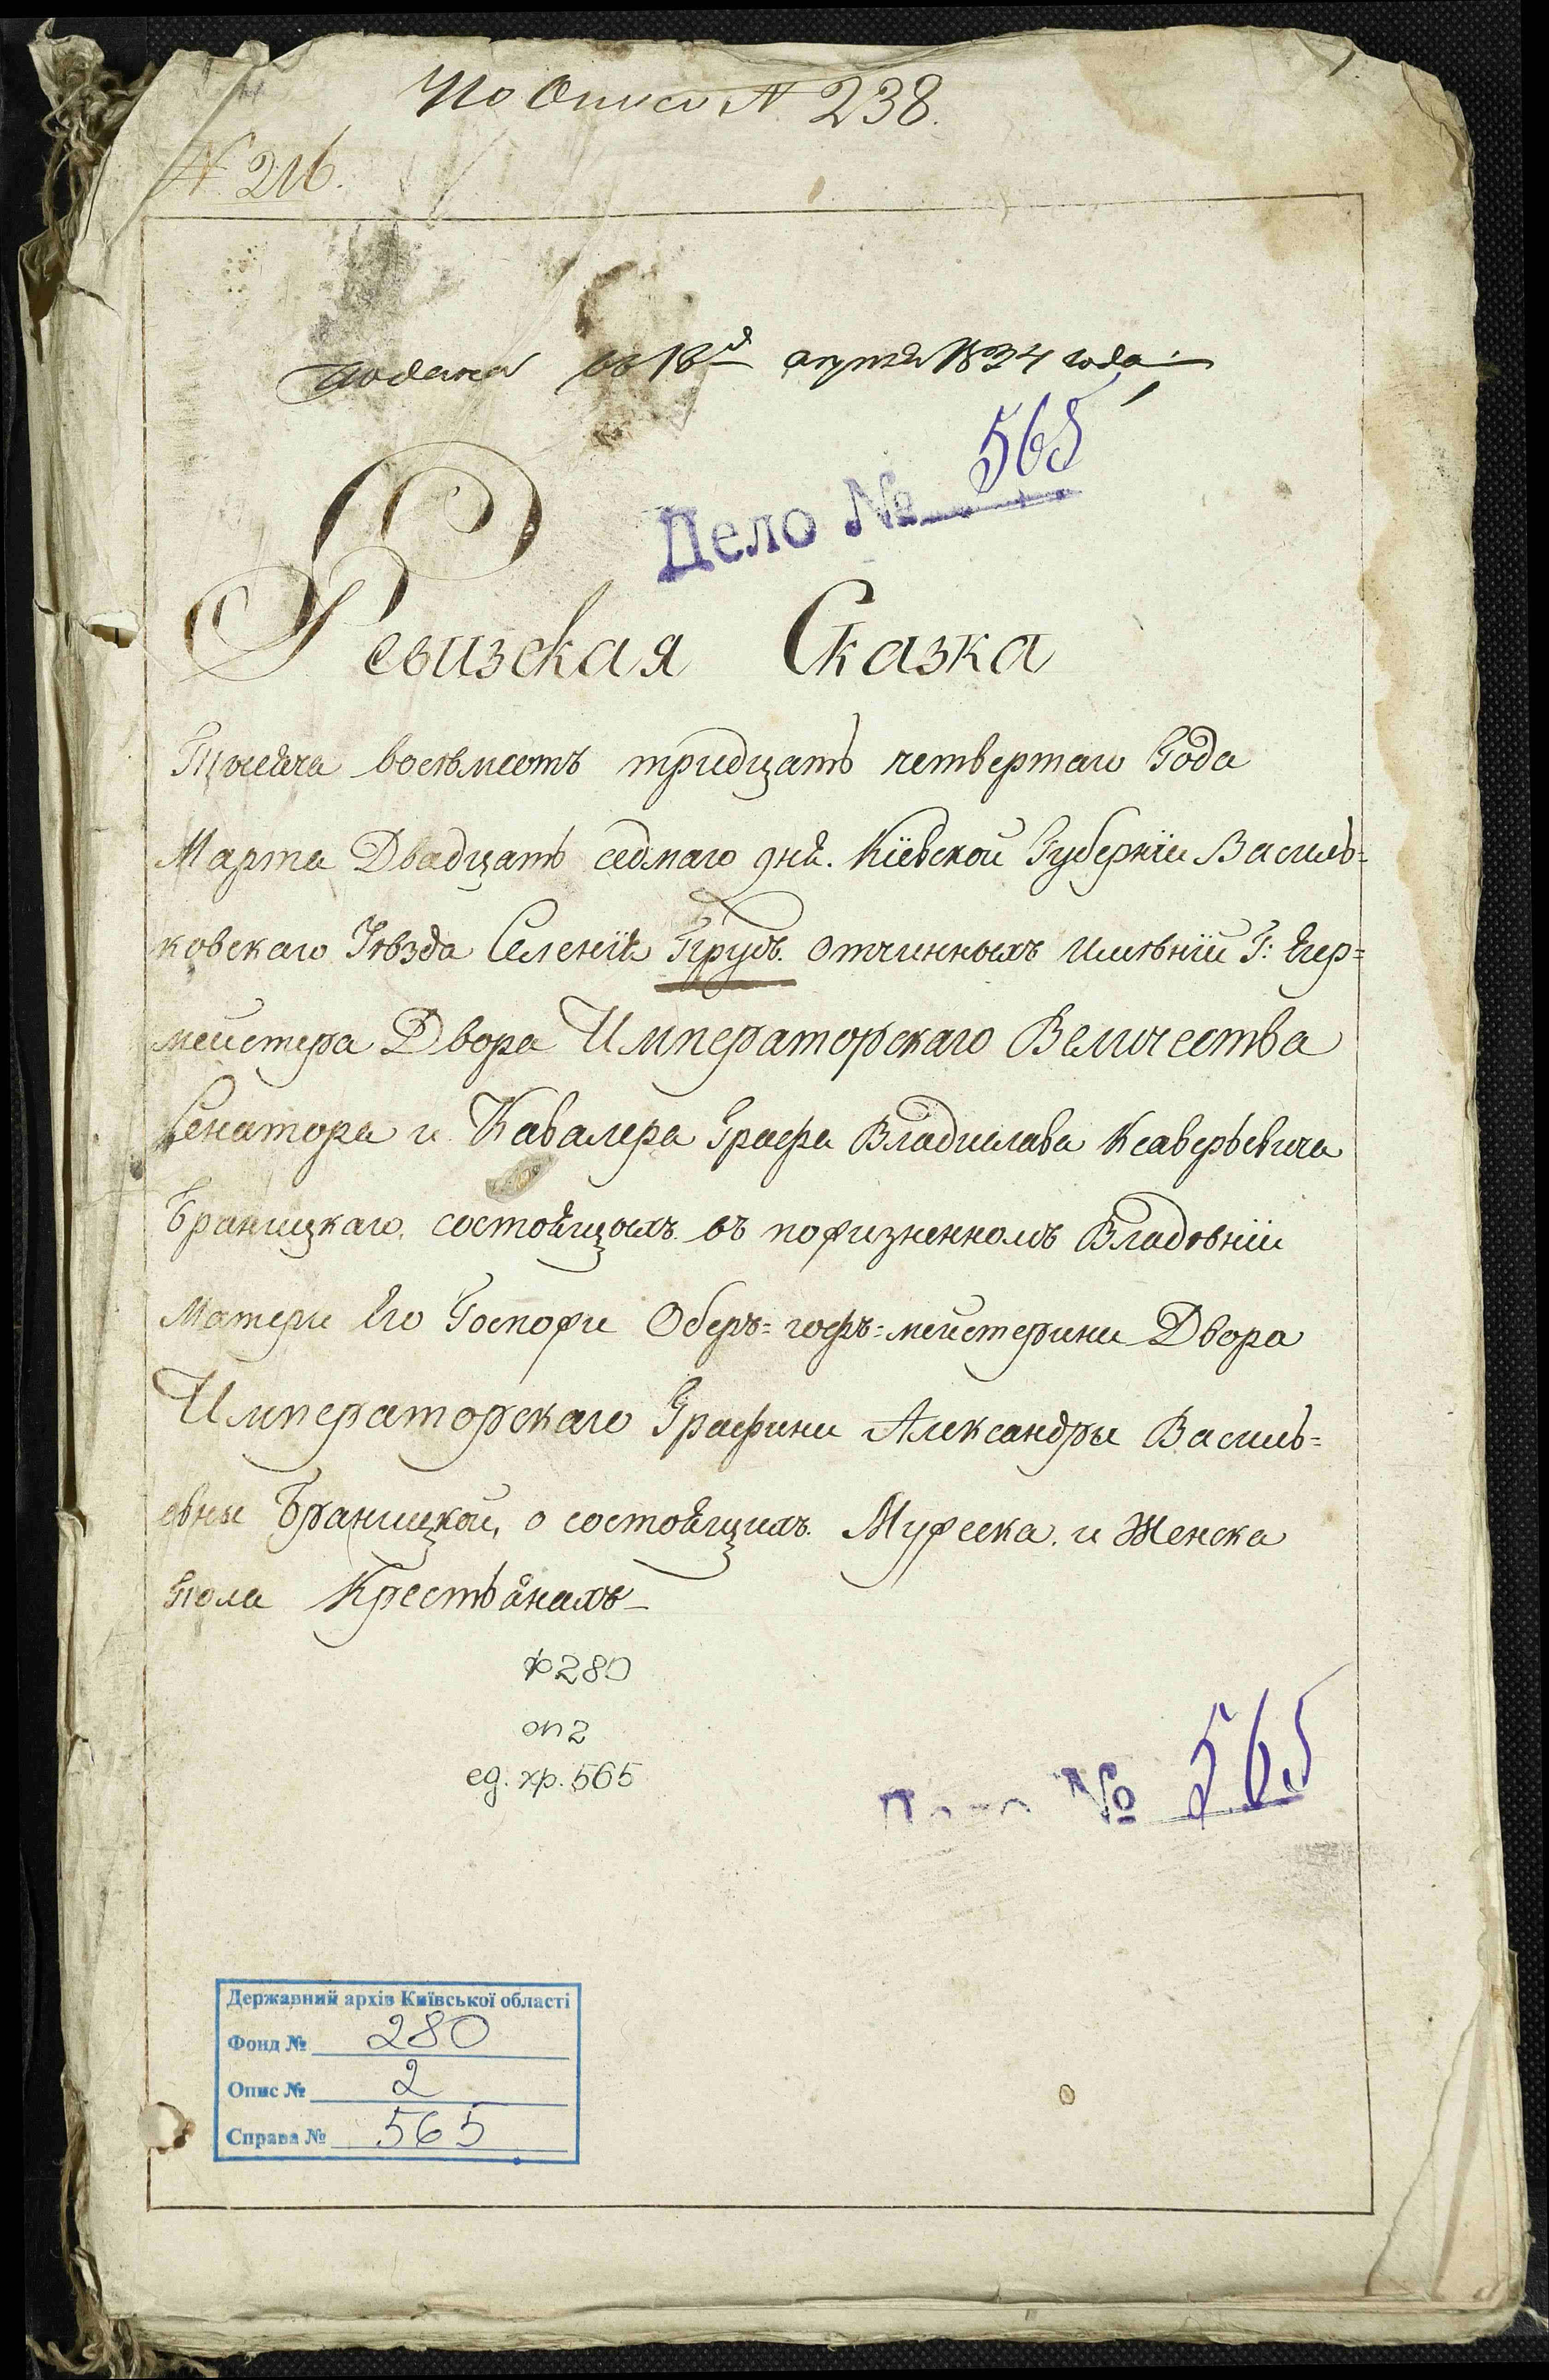 По Описи N 238.
N. 216.
Подана въ 18й апреля 1834 года
Дело № 565
Ревизская Сказка
Тысяча восемьсотъ тридцать четвертаго Года
Марта Двадцать седмаго дня. Кіевской Губерніи Василь=
ковскаго Уѣзда Селенія Прусъ. отчинныхъ имѣній Г: Егер=
мейстера Двора Императорскаго Величества
Сенатора и Кавалера Графа Владислава Ксаверьевича
Браницкаго, состоящихъ въ пожизненномъ Владѣніи
Матери Его Госпожи Оберъ=гофъ=мейстерини Двора
Императорскаго Графини Александры Василь=
евны Браницкой, о состоящихъ Мужеска и Женска
пола Крестьянахъ
ф 280
оп 2
ед. хр. 565
Дело № 565
Державний архів Київської області
Фонд № 280
Опис № 2
Справа № 565